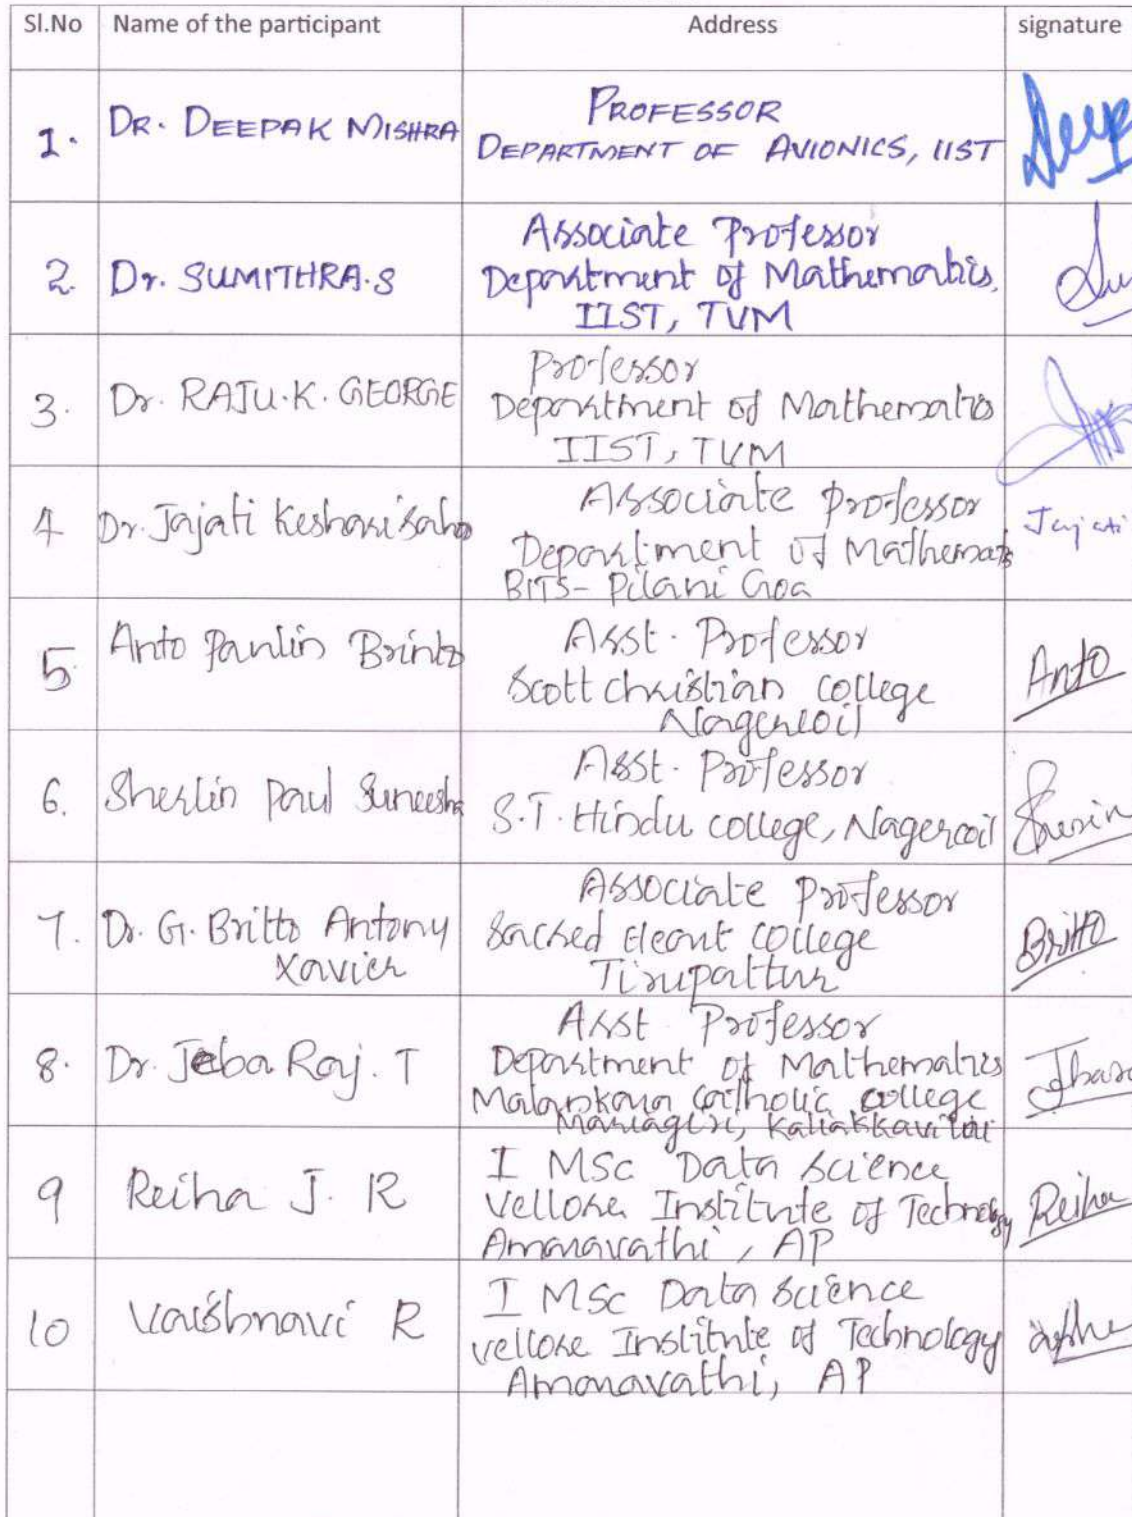 Sl.No Name of the participant Address signature
1. DR. DEEPAK MISHRA PROFESSOR
DEPARTMENT OF AVIONICS, IIST
2. Dr. SUMITHRA.S Associate Professor
Department of Mathematics,
IIST, TVM
3. Dr. RAJU.K. GEORGE Professor
Department of Mathematics
IIST, TVM
4 Dr. Jajati Keshari Sahoo Associate Professor
Department of Mathematis
BITS- Pilani Goa
Jajati
5 Anto Paulin Brinto Asst. Professor
Scott Christian College
Nagercoil
Anto
6. Sherlin Paul Suneesha Asst. Professor
S.T. Hindu college, Nagercoil
7. Dr. G. Britto Antony Associate Professor
Xavier Sacred Heart College
Tirupattur
Britto
8. Dr. Jeba Raj. T Asst Professor
Department of Mathematics
Malankara Catholic College
Mariagiri, Kaliakkavilai
9 Reiha J. R I MSc Data Science
Vellore Institute of Technology
Amaravathi, AP
Reiha
10 Vaishnavi R I MSc Data Science
Vellore Institute of Technology
Amaravathi, AP